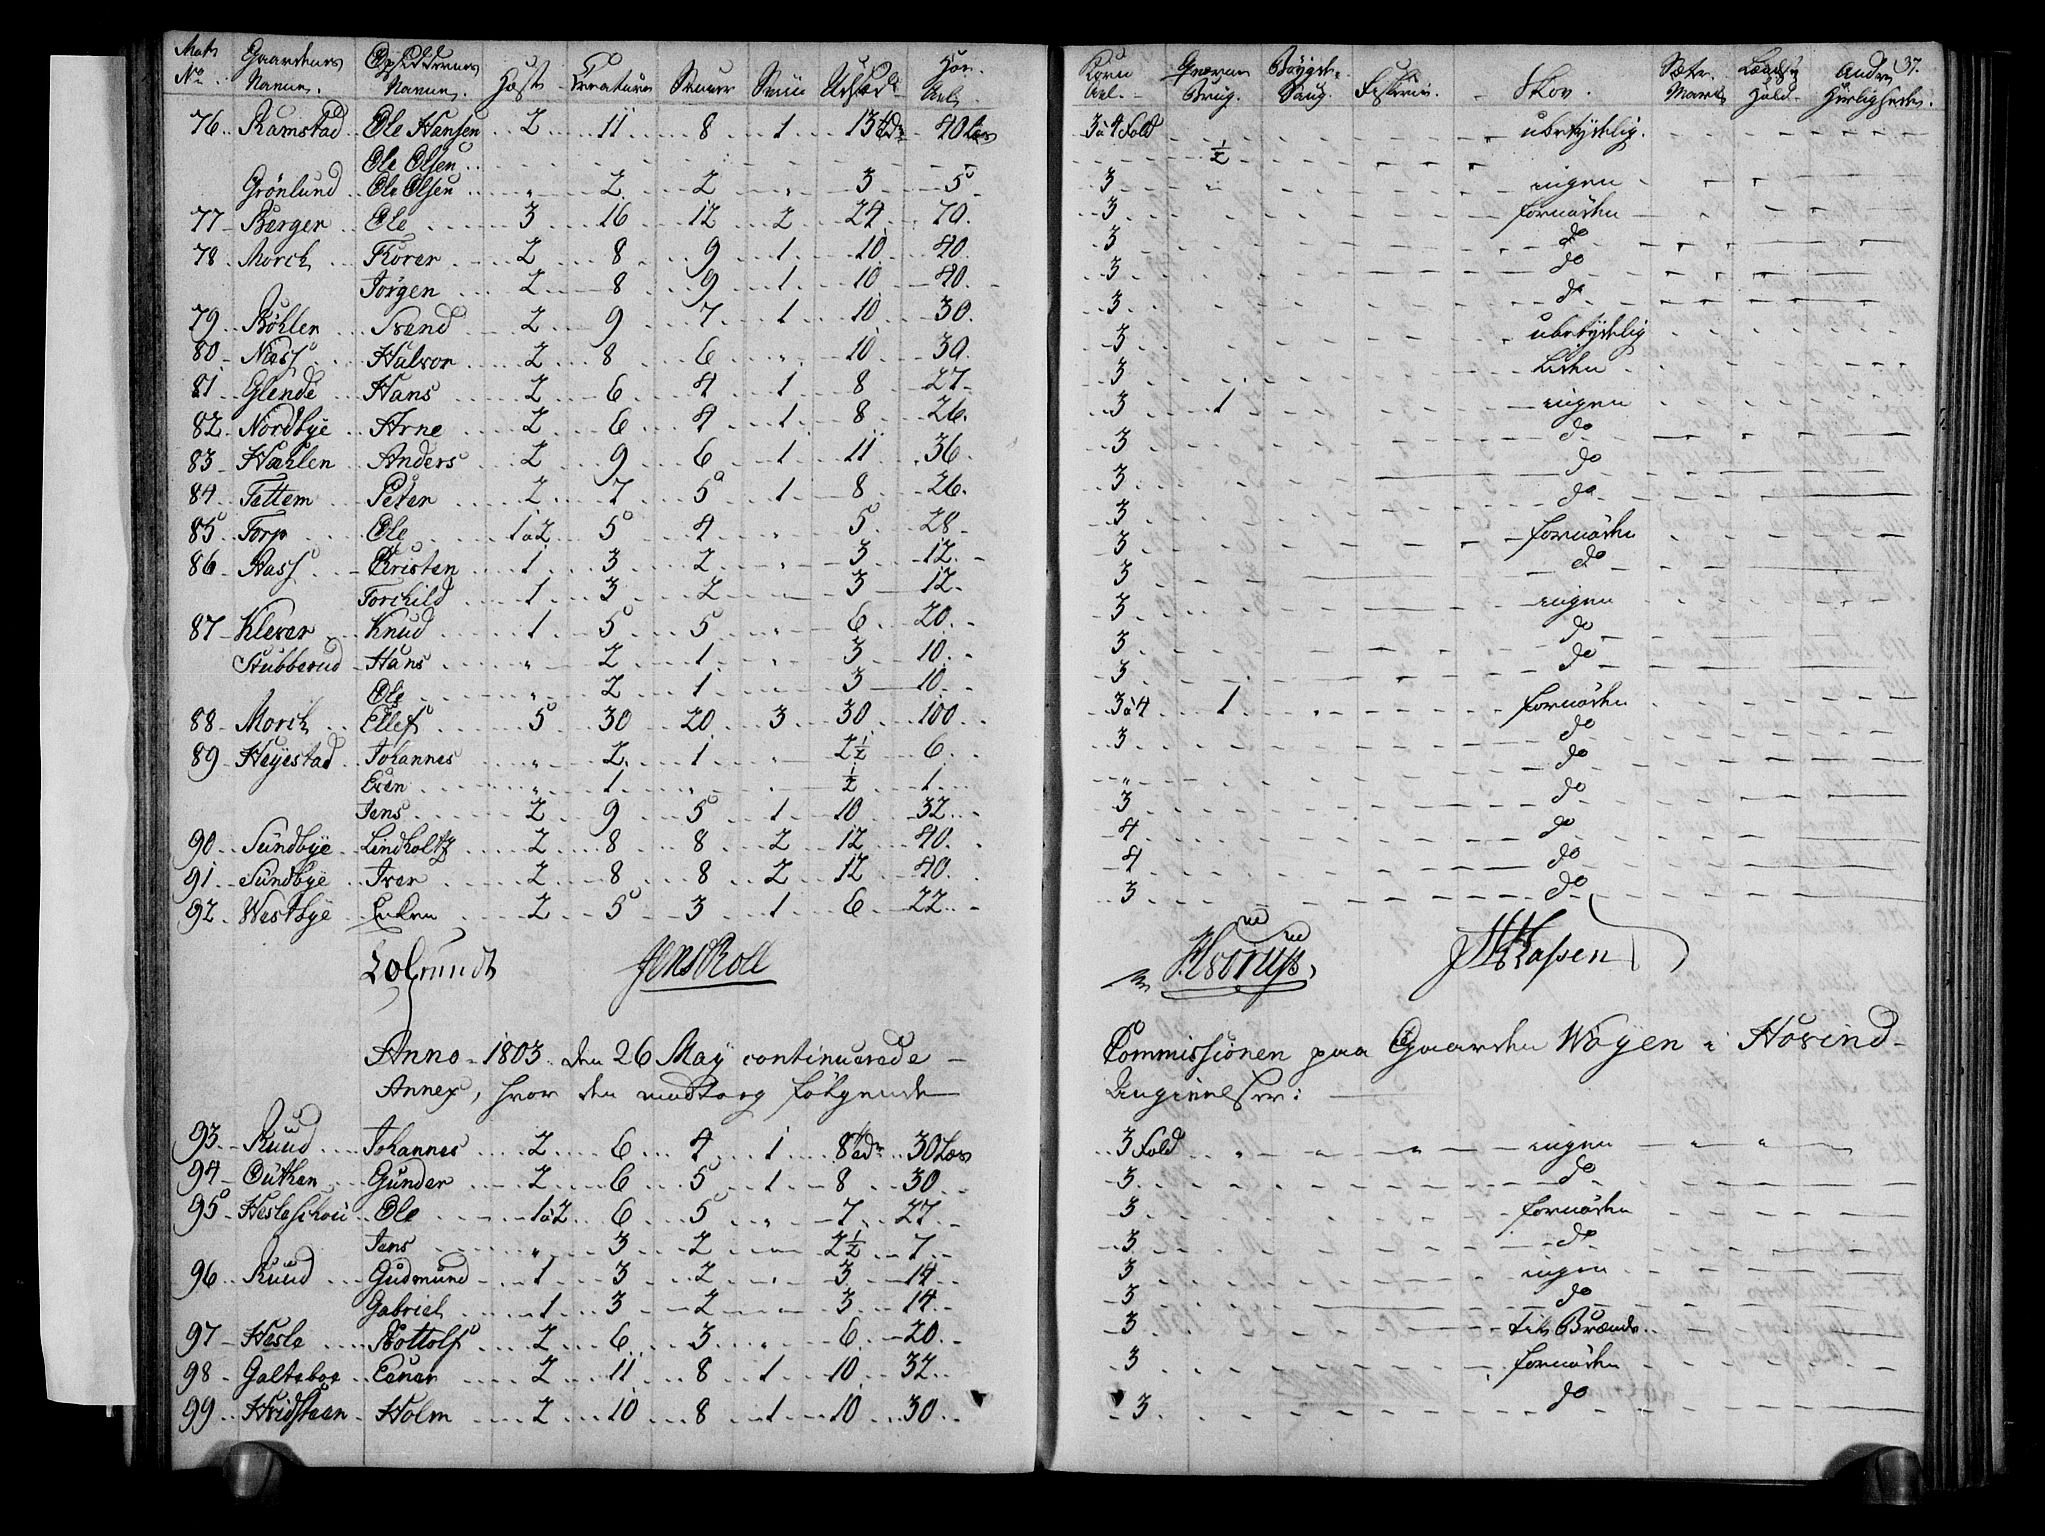 Mat: Gaardenes Opsiddernes Höe
No Navne. Navne. Hæste Creature Skouer Sviin Udsæd Avl.
76 Ramstad Ole Hansen 2 11 8 1 13 tdr 40 Læs
Ole Olsen
Grönlund Ole Olsen " 2 2 " 3 5
77 Berger Ole 3 16 12 2 24 70.
78 Morck Thorer 2 8 9 1 10 40.
Jörgen 2 8 9 1 10 40.
79 Böhler Svend 2 9 7 1 10 30.
80 Næss Halvor 2 8 6 " 10 30.
81 Glende Hans 2 6 4 1 8 27
82 Nordbye Arne 2 6 4 1 8 26.
83 Hæhlen Anders 2 9 6 1 11 36.
84 Tettem Peter 2 7 5 1 8 26.
85 Torp Ole 1a2 5 4 " 5 28
86 Hass Christen 1 3 2 " 3 12
Torchild 1 3 2 3 12
87 Klever Knud 1 5 5 " 6 20
Stubberud Hans " 2 1 " 3 10
Ole " 2 1 3 10
88 Morck Ellef 5 30 20 3 30 100
89 Heyestad Johannes " 2 1 " 2½ 6
Even " 1 " " ½ 1
Jens 2 9 5 1 10 32
90 Sundbye Lindholtz 2 8 8 2 12 40.
91 Sundbye Iver 2 8 8 2 12 40.
92 Westbye 2 5 3 1 6 22
Jens Roll
Anno 1803 den 26 May continuerede
Annex, hvor den modtog fölgende
93 Ruud Johannes 2 6 4 1 8 tdr 30 Læs
94 Outhen Gunder 2 6 5 1 8 30
95 Hesleskoui Ole 1a2 6 5 " 7 27
Jens " 3 2 2½ 7
96 Ruud Gudmund 1 3 2 " 3 14
Gabriel 1 3 2 3 14
97 Hesle Bottolf 2 6 3 " 6 20
98 Galteboe Einer 2 11 8 1 10 32
99 Hvidsteen Holm 2 10 8 1 10 30
37.
Korn Qværne Böygde Sæter Andre
Avl. Brug. Saug. Fiskerie. Skov. Mark Havn. Herligheder.
3a4 Fold ubetydelig.
½
3 " ingen
3 fornöden
3 do
3 do
3 do
3 ubetydelig
3 Liden
3 1 ingen
3 do
3 do
3 do
3 fornöden
3 do
3 ingen
3 do
3 do
3a4 1 fornöden
3 do
" do
3 do
4 do
4 do
3 do
Commissionen paa Gaarden Wöyen i Hovind
Angivelser:
3 Fold " " ingen " "
3 do
3 fornöden
3 do
3 ingen
3 do
3 til Brænde
3 fornöden
3 do